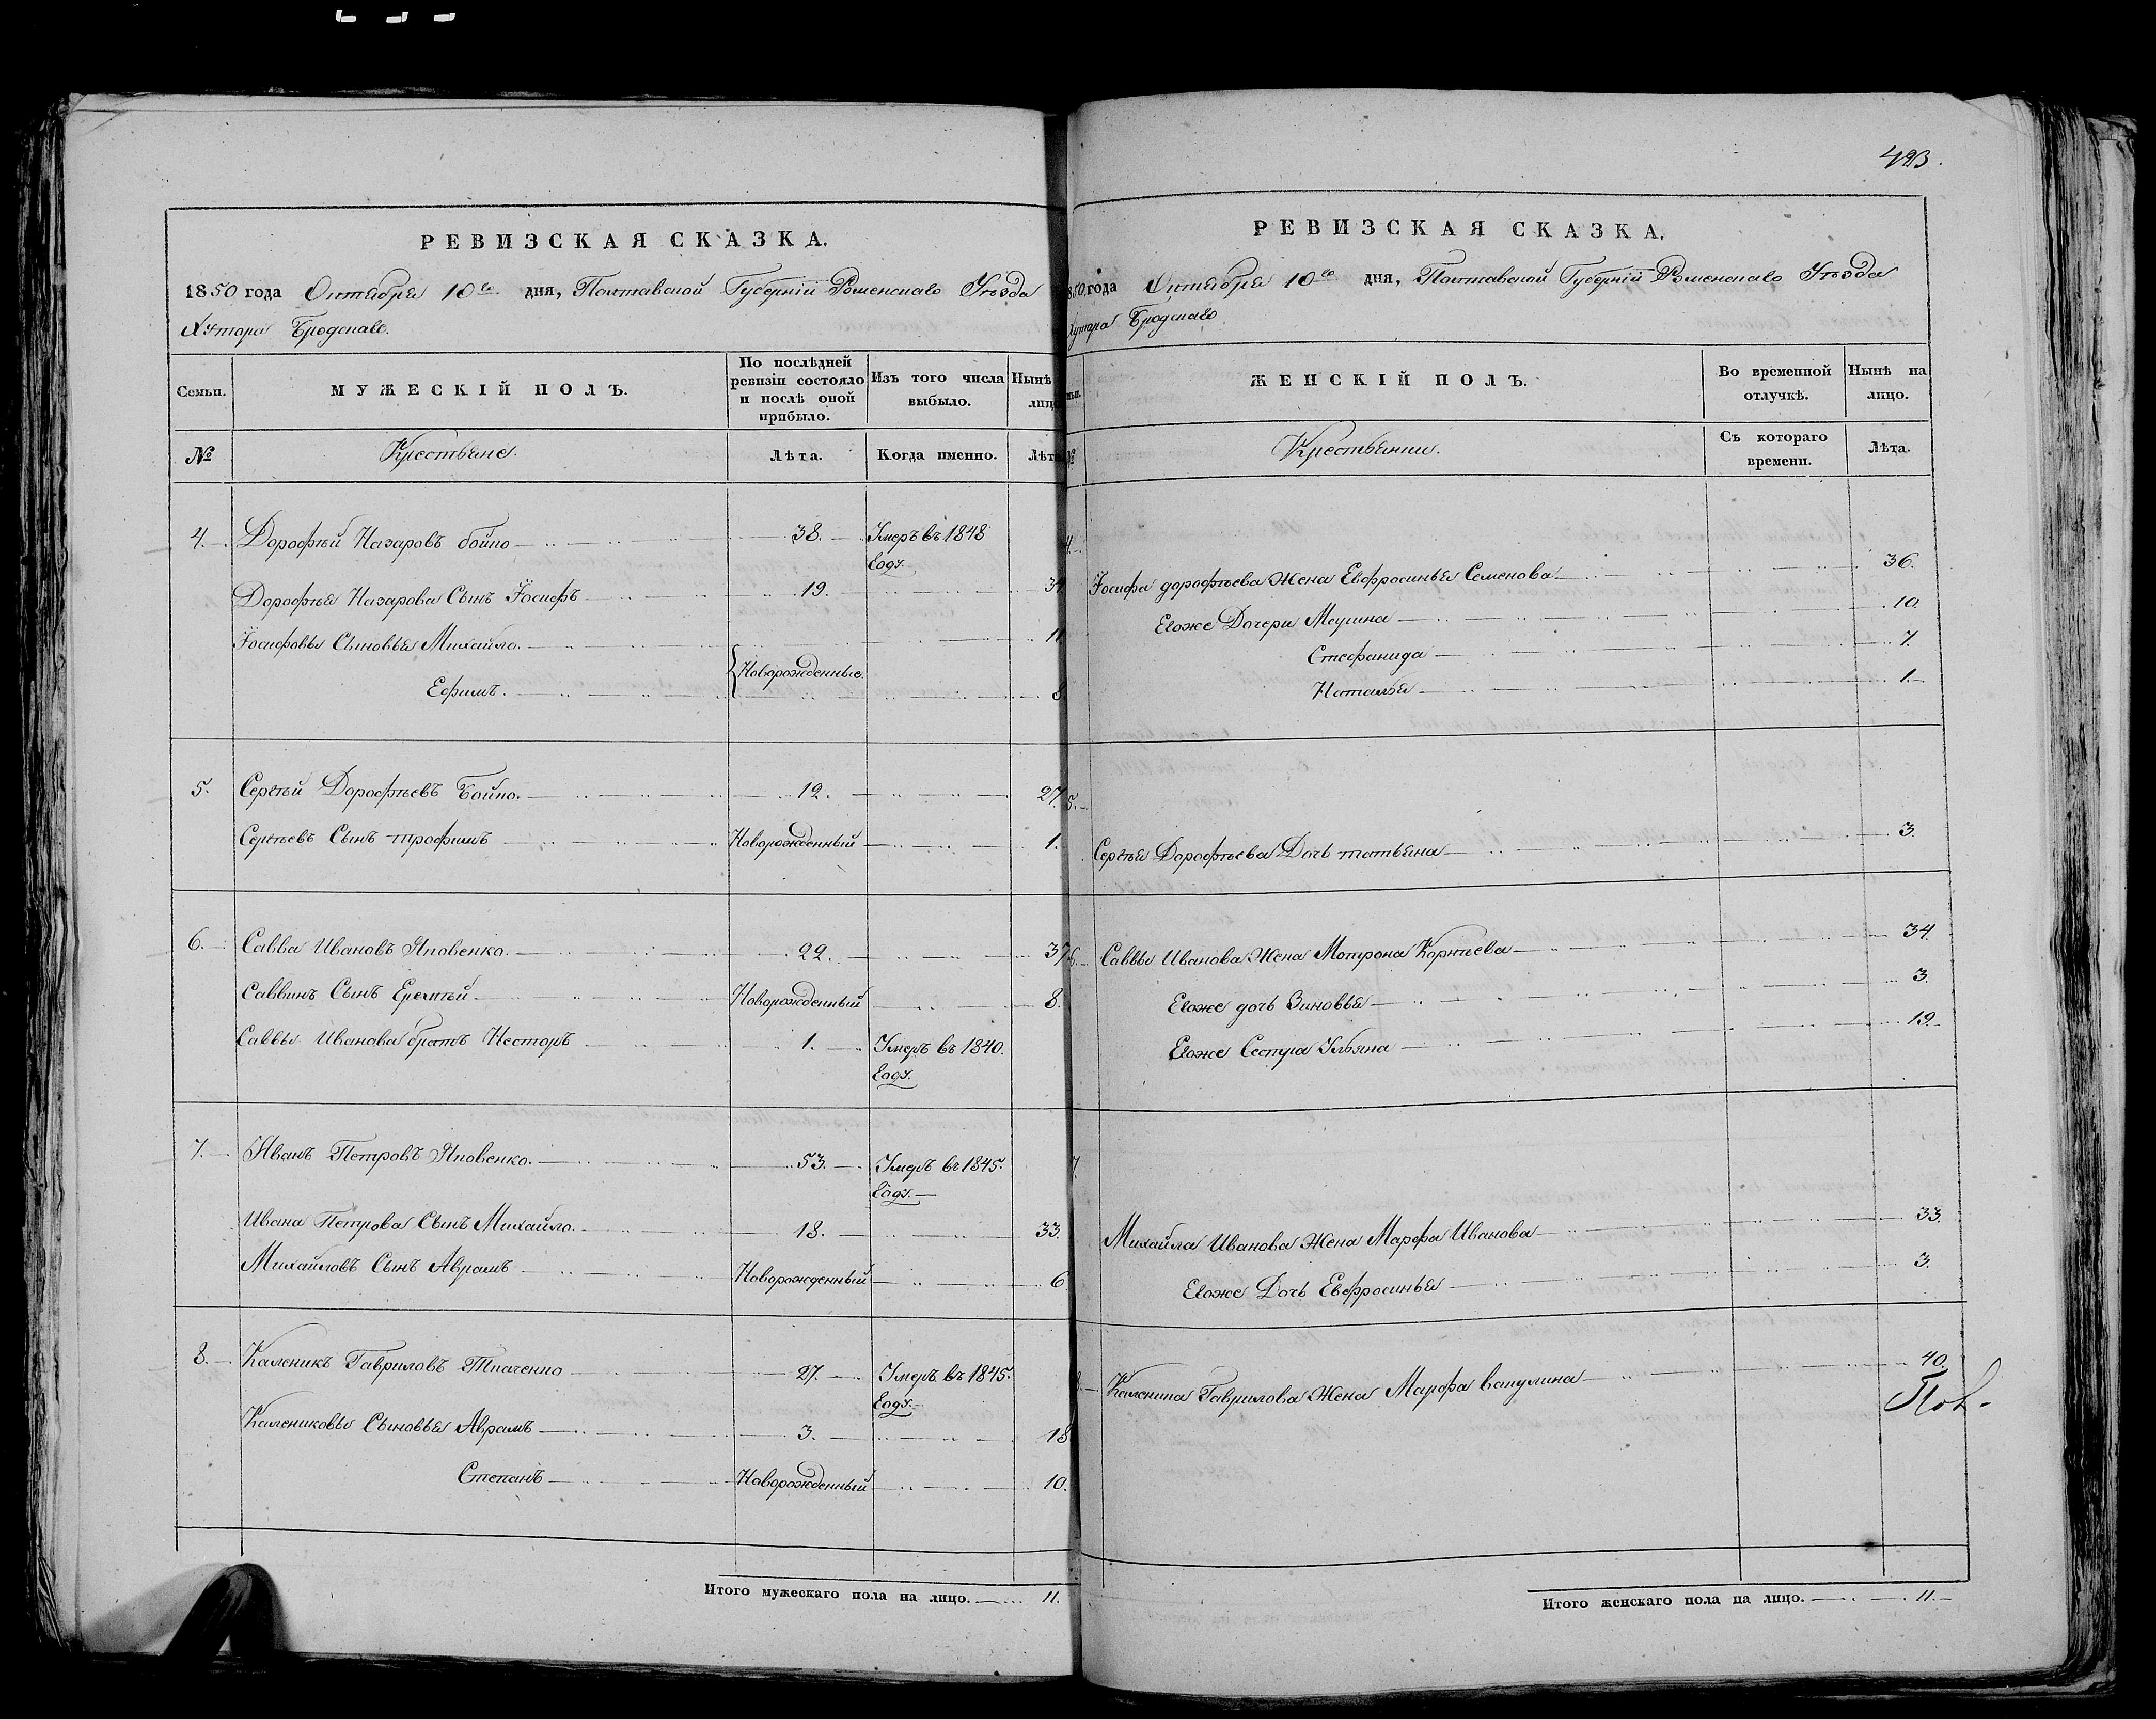 423.
РЕВИЗСКАЯ СКАЗКА.
1850 года Октября 10го дня, Полтавской Губерніи Роменскаго Уѣзда
Хутора Бродскаго.
Семьи. МУЖЕСКІЙ ПОЛЪ. По послѣдней ревизіи состояло и послѣ оной прибыло. Изъ того числа выбыло. Нынѣ лицо
№ Крестьяне. Лѣта. Когда именно. Лѣта
4. Дорофѣй Назаровъ бойко 38. Умеръ въ 1848 Году
Дорофѣя Назарова Сынъ Іосифъ 19. 34.
Іосифовы Сыновья Михайло. 11
Новорожденные.
Ефимъ. 8.
5. Сергѣй Дорофѣевъ Бойко. 12. 27.
Сергѣевъ Сынъ трофимъ Новорожденный 1.
6. Савва Ивановъ Яковенко. 22. 37
Саввинъ Сынъ Еремѣй Новорожденный 8.
Саввы Иванова братъ Несторъ 1. Умеръ въ 1840. Году.
7. Иванъ Петровъ Яковенко. 53. Умеръ въ 1845. Году.
Ивана Петрова Сынъ Михайло. 18. 33.
Михайловъ Сынъ Аврамъ Новорожденный 6
8. Каленикъ Гавриловъ Ткаченко 27. Умеръ въ 1845. Году.
Калениковы Сыновья Аврамъ 3. 18
Степанъ Новорожденный 10.
Итого мужескаго пола на лицо. 11.
РЕВИЗСКАЯ СКАЗКА.
850 года Октября 10го дня, Полтавской Губерніи Роменскаго Уѣзда
Хутора Бродскаго
ЖЕНСКІЙ ПОЛЪ. Во временной отлучкѣ. Нынѣ на лицо.
№ Крестьянки. Съ котораго времени. Лѣта.
4. Іосифа дорофѣева Жена Евфросинья Семенова 36.
Егоже Дочери Марина 10.
Стефанида 7.
Наталья 1.
5. Сергѣя Дорофѣева Дочь татьяна 3.
6. Саввы Иванова Жена Мотрона Корнѣева 34.
Егоже дочь Зиновья 3.
Егоже Сестра Ульяна 19.
7. Михайла Иванова Жена Марфа Иванова 33.
Егоже Дочь Евфросинья 3.
8. Каленика Гаврилова Жена Марфа вакулина 40.
Пов.
Итого женскаго пола на лицо. 11.